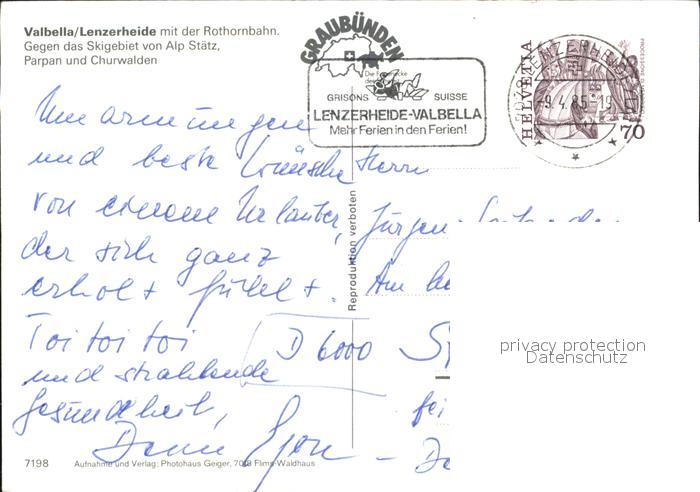 Valbella/Lenzerheide mit der Rothornbahn.
Gegen das Skigebiet von Alp Stätz,
Parpan und Churwalden
GRAUBÜNDEN
GRISONS SUISSE
LENZERHEIDE-VALBELLA
Mehr Ferien in den Ferien!
LENZERHEIDE
-9.4.85-19
HELVETIA
70
Umarmungen
und beste Wünsche
von einem Urlauber,
der sich ganz
erholt fühlt.
Toi toi toi
und strahlende
Gesundheit,
Dein Egon
Herrn
Jürgen
Am
D 6000
Reproduktion verboten
privacy protection
Datenschutz
7198 Aufnahme und Verlag: Photohaus Geiger, 7018 Flims-Waldhaus